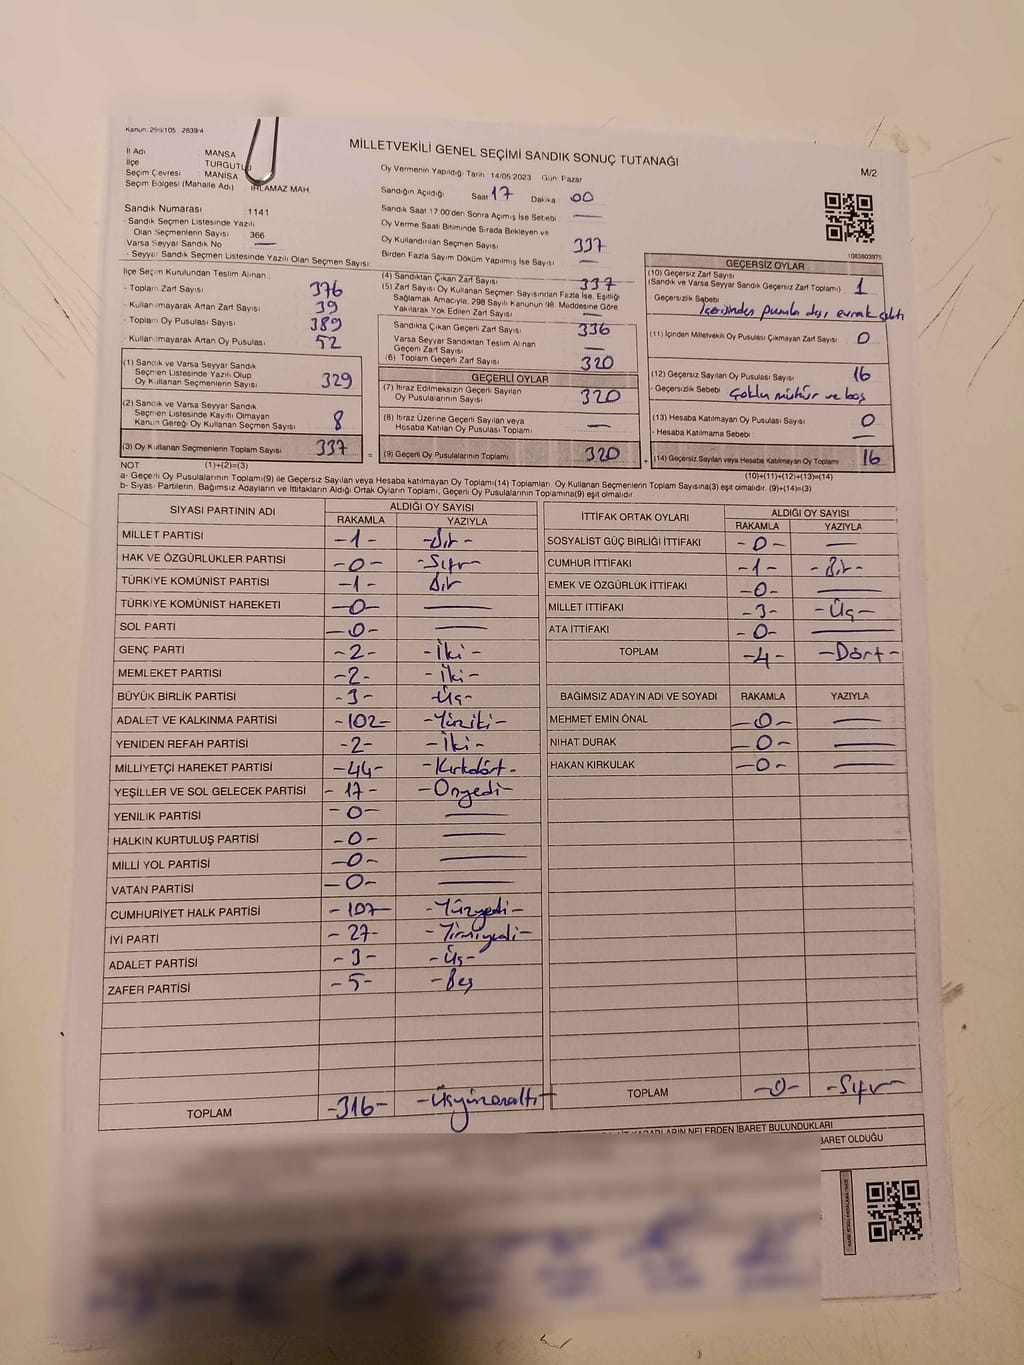 Kanun: 298/105 , 2839/4
MİLLETVEKİLİ GENEL SEÇİMİ SANDIK SONUÇ TUTANAĞI
M/2
İl Adı : MANİSA
İlçe : TURGUTLU
Seçim Çevresi : MANİSA
Seçim Bölgesi (Mahalle Adı) : IRLAMAZ MAH
Oy Vermenin Yapıldığı Tarih : 14/05/2023 Gün: Pazar
Sandığın Açıldığı Saat 17 Dakika 00
Sandık Saat 17:00'den Sonra Açılmış İse Sebebi : —
Oy Verme Saati Bitiminde Sırada Bekleyen ve
Oy Kullandırılan Seçmen Sayısı : 337
Birden Fazla Sayım Döküm Yapılmış İse Sayısı : —
Sandık Numarası : 1141
- Sandık Seçmen Listesinde Yazılı
Olan Seçmenlerin Sayısı : 366
Varsa Seyyar Sandık No —
- Seyyar Sandık Seçmen Listesinde Yazılı Olan Seçmen Sayısı:
1083803975
İlçe Seçim Kurulundan Teslim Alınan :
- Toplam Zarf Sayısı : 376
- Kullanılmayarak Artan Zarf Sayısı : 39
- Toplam Oy Pusulası Sayısı : 389
- Kullanılmayarak Artan Oy Pusulası : 52
(1) Sandık ve Varsa Seyyar Sandık
Seçmen Listesinde Yazılı Olup
Oy Kullanan Seçmenlerin Sayısı : 329
(2) Sandık ve Varsa Seyyar Sandık
Seçmen Listesinde Kayıtlı Olmayan
Kanun Gereği Oy Kullanan Seçmen Sayısı : 8
(3) Oy Kullanan Seçmenlerin Toplam Sayısı : 337
(4) Sandıktan Çıkan Zarf Sayısı : 337
(5) Zarf Sayısı Oy Kullanan Seçmen Sayısından Fazla İse, Eşitliği
Sağlamak Amacıyla, 298 Sayılı Kanunun 98. Maddesine Göre
Yakılarak Yok Edilen Zarf Sayısı : —
Sandıkta Çıkan Geçerli Zarf Sayısı : 336
Varsa Seyyar Sandıktan Teslim Alınan
Geçerli Zarf Sayısı : —
(6) Toplam Geçerli Zarf Sayısı : 320
GEÇERLİ OYLAR
(7) İtiraz Edilmeksizin Geçerli Sayılan
Oy Pusulalarının Sayısı : 320
(8) İtiraz Üzerine Geçerli Sayılan veya
Hesaba Katılan Oy Pusulası Toplamı : —
= (9) Geçerli Oy Pusulalarının Toplamı : 320
GEÇERSİZ OYLAR
(10) Geçersiz Zarf Sayısı
(Sandık ve Varsa Seyyar Sandık Geçersiz Zarf Toplamı) : 1
- Geçersizlik Sebebi : İçerisinden pusula dışı evrak çıktı
(11) İçinden Milletvekili Oy Pusulası Çıkmayan Zarf Sayısı : 0
(12) Geçersiz Sayılan Oy Pusulası Sayısı : 16
- Geçersizlik Sebebi : Çoklu mühür ve boş
(13) Hesaba Katılmayan Oy Pusulası Sayısı : 0
- Hesaba Katılmama Sebebi : —
+ (14) Geçersiz Sayılan veya Hesaba Katılmayan Oy Toplamı : 16
NOT: (1)+(2)=(3) (10)+(11)+(12)+(13)=(14)
a- Geçerli Oy Pusulalarının Toplamı(9) ile Geçersiz Sayılan veya Hesaba katılmayan Oy Toplamı(14) Toplamları, Oy Kullanan Seçmenlerin Toplam Sayısına(3) eşit olmalıdır. (9)+(14)=(3)
b- Siyasi Partilerin, Bağımsız Adayların ve İttifakların Aldığı Ortak Oyların Toplamı, Geçerli Oy Pusulalarının Toplamına(9) eşit olmalıdır.
SİYASİ PARTİNİN ADI ALDIĞI OY SAYISI
RAKAMLA YAZIYLA
MİLLET PARTİSİ -1- -Bir-
HAK VE ÖZGÜRLÜKLER PARTİSİ -0- -Sıfır-
TÜRKİYE KOMÜNİST PARTİSİ -1- Bir
TÜRKİYE KOMÜNİST HAREKETİ -0- —
SOL PARTİ -0- —
GENÇ PARTİ -2- -İki-
MEMLEKET PARTİSİ -2- -İki-
BÜYÜK BİRLİK PARTİSİ -3- -Üç-
ADALET VE KALKINMA PARTİSİ -102- -Yüziki-
YENİDEN REFAH PARTİSİ -2- -İki-
MİLLİYETÇİ HAREKET PARTİSİ -44- -Kırkdört-
YEŞİLLER VE SOL GELECEK PARTİSİ -17- -Onyedi-
YENİLİK PARTİSİ -0- —
HALKIN KURTULUŞ PARTİSİ -0- —
MİLLİ YOL PARTİSİ -0- —
VATAN PARTİSİ -0- —
CUMHURİYET HALK PARTİSİ -107- -Yüzyedi-
İYİ PARTİ -27- -Yirmiyedi-
ADALET PARTİSİ -3- -Üç-
ZAFER PARTİSİ -5- -Beş
TOPLAM -316- -Üçyüzonaltı-
İTTİFAK ORTAK OYLARI ALDIĞI OY SAYISI
RAKAMLA YAZIYLA
SOSYALİST GÜÇ BİRLİĞİ İTTİFAKI -0- —
CUMHUR İTTİFAKI -1- -Bir-
EMEK VE ÖZGÜRLÜK İTTİFAKI -0- —
MİLLET İTTİFAKI -3- -Üç-
ATA İTTİFAKI -0- —
TOPLAM -4- -Dört-
BAĞIMSIZ ADAYIN ADI VE SOYADI RAKAMLA YAZIYLA
MEHMET EMİN ÖNAL -0- —
NİHAT DURAK -0- —
HAKAN KIRKULAK -0- —
TOPLAM -0- -Sıfır-
KARARLARIN NELERDEN İBARET BULUNDUKLARI
İBARET OLDUĞU